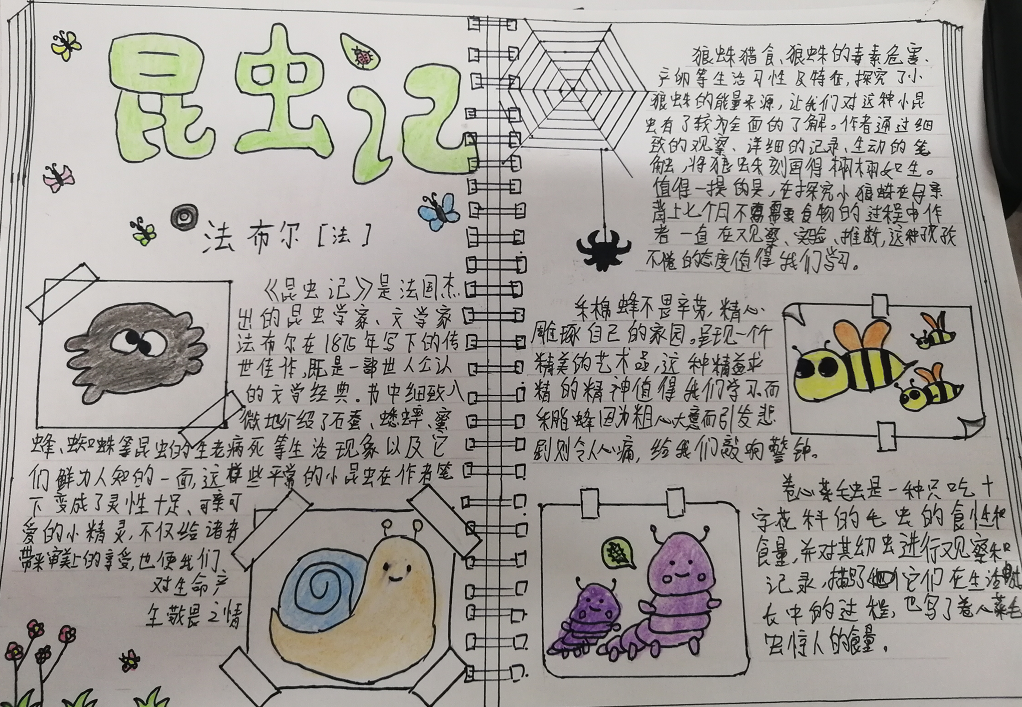 昆虫记
法布尔［法］
《昆虫记》是法国杰
出的昆虫学家、文学家
法布尔在1875年写下的传
世佳作,既是一部世人公认
的文学经典。书中细致入
微地介绍了石蚕、蟋蟀、蜜
蜂、蜘蛛等昆虫的生老病死等生活现象以及它
们鲜为人知的一面,这样些平常的小昆虫在作者笔
下变成了灵性十足、可亲可
爱的小精灵,不仅给读者
带来审美上的享受,也使我们、
对生命产
生敬畏之情
狼蛛猎食、狼蛛的毒素危害、
产卵等生活习性及特征,探究了小
狼蛛的能量来源,让我们对这种小昆
虫有了较为全面的了解。作者通过细
致的观察、详细的记录、生动的笔
触,将狼蛛刻画得栩栩如生。
值得一提的是,在探究小狼蛛在母亲
背上七个月不需要食物的过程中作
者一直在观察、实验、推敲,这种孜孜
不倦的态度值得我们学习。
采棉蜂不畏辛劳,精心
雕琢自己的家园。呈现一个
精美的艺术品,这种精益求
精的精神值得我们学习而
采脂蜂因为粗心大意而引发悲
剧则令人心痛,给我们敲响警钟。
卷心菜毛虫是一种只吃十
字花科的毛虫的食性和
食量,并对其幼虫进行观察和
记录,描写它们在生活
长中的过程,也写了卷心菜毛
虫惊人的食量。